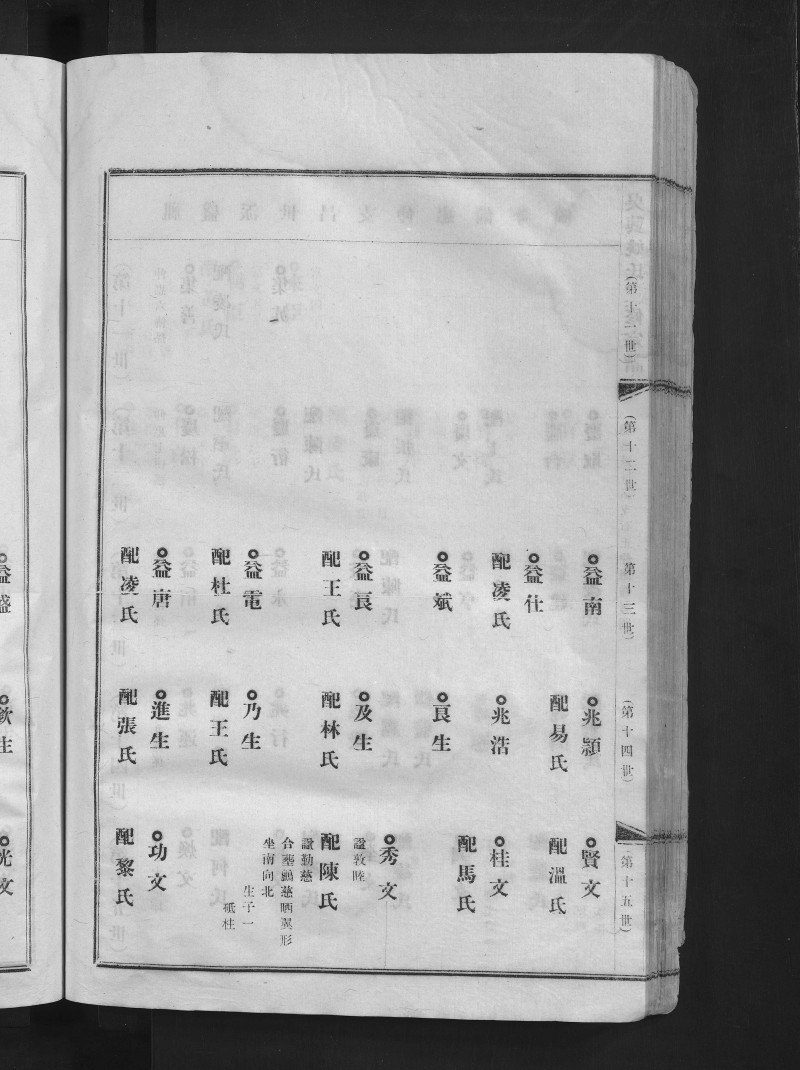 （第十一世）
（第十二世）
（第十三世）
（第十四世）
（第十五世）
益南
兆顥
賢文
益仕
配易氏
配溫氏
配凌氏
兆浩
桂文
益斌
良生
配馬氏
益良
及生
秀文
諡敦睦
配王氏
配林氏
配陳氏
諡勤慈
合塟鸕慈晒翼形
坐南向北
生子一
砥柱
益電
乃生
配杜氏
配王氏
益唐
進生
功文
配凌氏
配張氏
配黎氏
益盛
欽生
光文